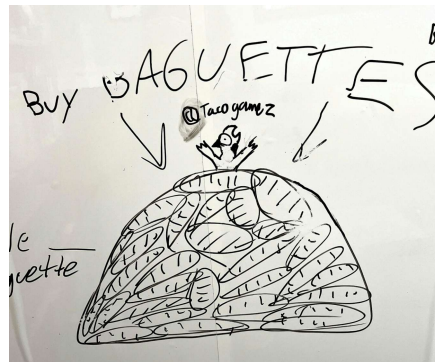 BUY BAGUETTES
@Tacogamez
le
guette